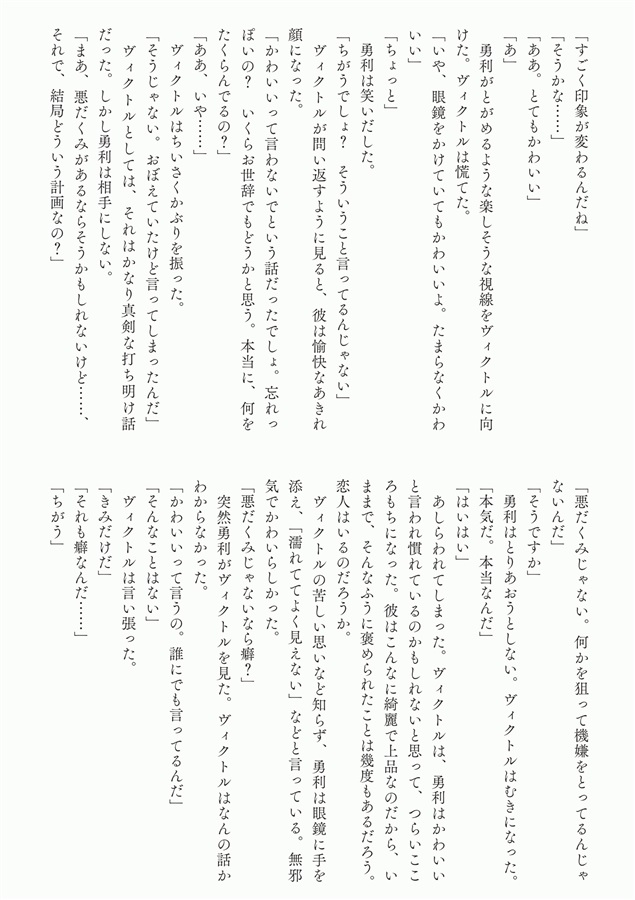 「すごく印象が変わるんだね」
「そうかな……」
「ああ。とてもかわいい」
「あ」
　勇利がとがめるような楽しそうな視線をヴィクトルに向
けた。ヴィクトルは慌てた。
「いや、眼鏡をかけていてもかわいいよ。たまらなくかわ
いい」
「ちょっと」
　勇利は笑いだした。
「ちがうでしょ？　そういうこと言ってるんじゃない」
　ヴィクトルが問い返すように見ると、彼は愉快なあきれ
顔になった。
「かわいいって言わないでという話だったでしょ。忘れっ
ぽいの？　いくらお世辞でもどうかと思う。本当に、何を
たくらんでるの？」
「ああ、いや……」
　ヴィクトルはちいさくかぶりを振った。
「そうじゃない。おぼえていたけど言ってしまったんだ」
　ヴィクトルとしては、それはかなり真剣な打ち明け話
だった。しかし勇利は相手にしない。
「まあ、悪だくみがあるならそうかもしれないけど……、
それで、結局どういう計画なの？」
「悪だくみじゃない。何かを狙って機嫌をとってるんじゃ
ないんだ」
「そうですか」
　勇利はとりあおうとしない。ヴィクトルはむきになった。
「本気だ。本当なんだ」
「はいはい」
　あしらわれてしまった。ヴィクトルは、勇利はかわいい
と言われ慣れているのかもしれないと思って、つらいここ
ろもちになった。彼はこんなに綺麗で上品なのだから、い
ままで、そんなふうに褒められたことは幾度もあるだろう。
恋人はいるのだろうか。
　ヴィクトルの苦しい思いなど知らず、勇利は眼鏡に手を
添え、「濡れててよく見えない」などと言っている。無邪
気でかわいらしかった。
「悪だくみじゃないなら癖？」
　突然勇利がヴィクトルを見た。ヴィクトルはなんの話か
わからなかった。
「かわいいって言うの。誰にでも言ってるんだ」
「そんなことはない」
　ヴィクトルは言い張った。
「きみだけだ」
「それも癖なんだ……」
「ちがう」